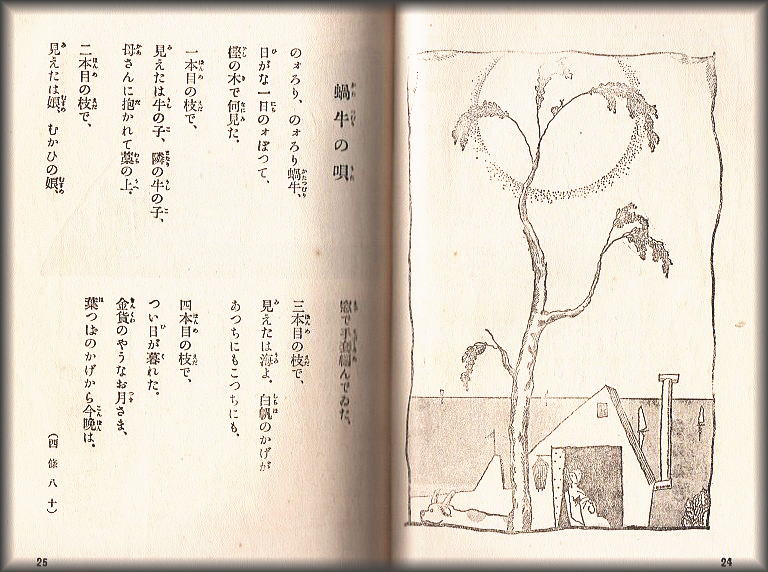 蝸牛の唄
のォろり、のォろり蝸牛、
日がな一日のォぼつて、
橿の木で何見た。
一本目の枝で、
見えたは牛の子、隣の牛の子、
母さんに抱かれて藁の上。
二本目の枝で、
見えたは娘、むかひの娘、
窓で手套編んでゐた。
三本目の枝で、
見えたは海よ、白帆のかげが
あつちにもこつちにも。
四本目の枝で、
つい日が暮れた。
金貨のやうなお月さま、
葉つぱのかげから今晩は。
(西條八十)
25
24